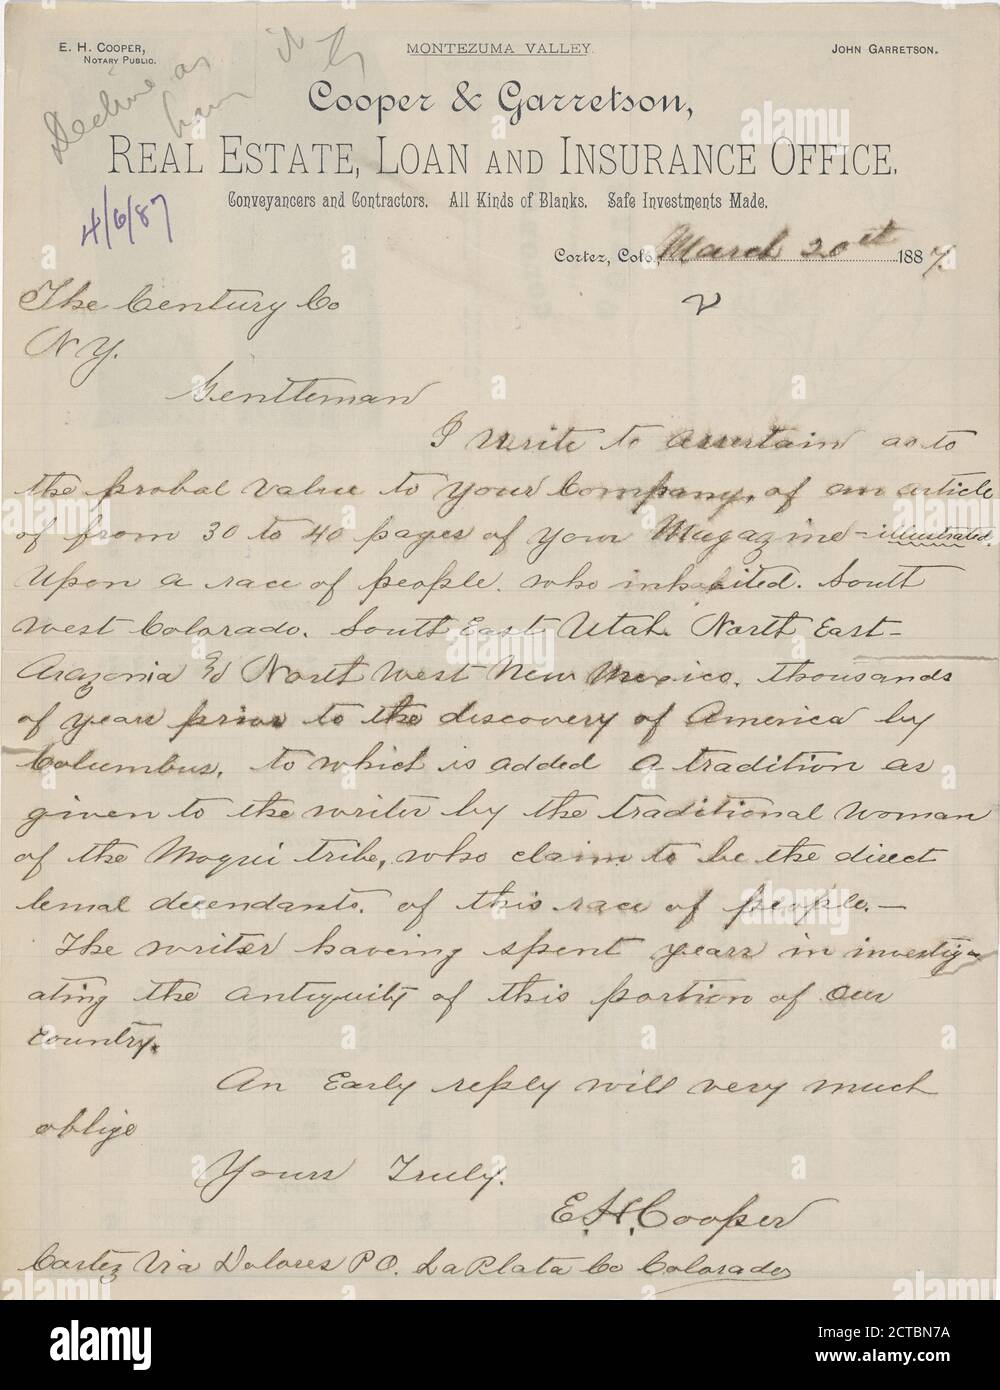 E. H. COOPER,
NOTARY PUBLIC.
MONTEZUMA VALLEY.
JOHN GARRETSON.
Decline as
have it
4/6/87
Cooper & Garretson,
REAL ESTATE, LOAN AND INSURANCE OFFICE.
Conveyancers and Contractors. All Kinds of Blanks. Safe Investments Made.
Cortez, Colo., March 20st 1887.
The Century Co
N Y.
Gentleman
I write to assertain as to
the probal value to your Company, of an article
of from 30 to 40 pages of your Magazine - illustrated.
Upon a race of people. who inhabited. South
West Colorado. South East Utah. North East-
Arazonia & North West New Mexico. thousands
of years prior to the discovery of America by
Columbus. to which is added a tradition as
given to the writer by the traditional woman
of the Moqui tribe, who claim to be the direct
lenial decendants. of this race of people. —
The writer haveing spent years in investig-
ating the antiquity of this portion of our
country.
An Early reply will very much
oblige
Yours Truly.
E.H. Cooper
Cortez Via Dolores P O. La Plata Co Colorado
alamy
Image ID: 2CTBN7A
www.alamy.com